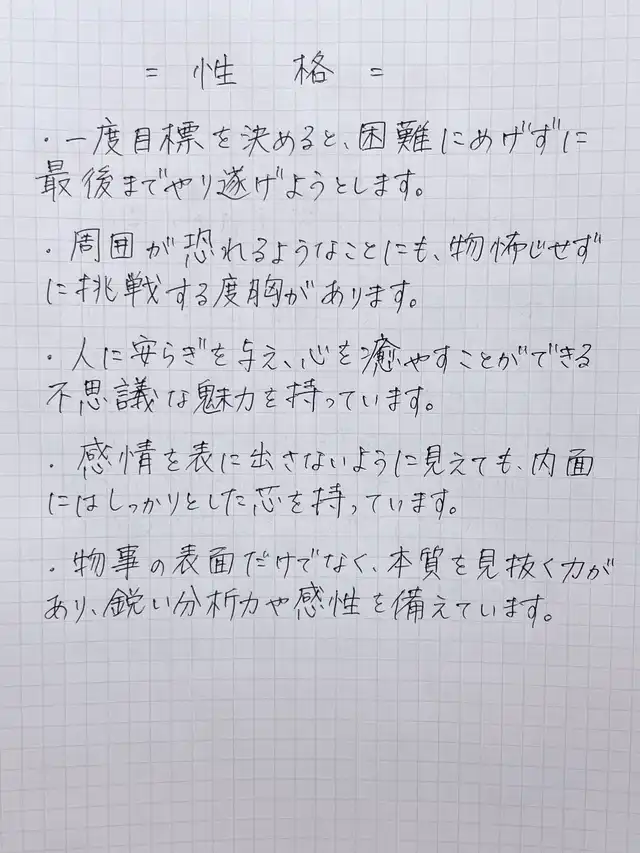 = 性 格 =
・一度目標を決めると、困難にめげずに
最後までやり遂げようとします。
・周囲が恐れるようなことにも、物怖じせず
に挑戦する度胸があります。
・人に安らぎを与え、心を癒やすことができる
不思議な魅力を持っています。
・感情を表に出さないように見えても、内面
にはしっかりとした芯を持っています。
・物事の表面だけでなく、本質を見抜く力が
あり、鋭い分析力や感性を備えています。